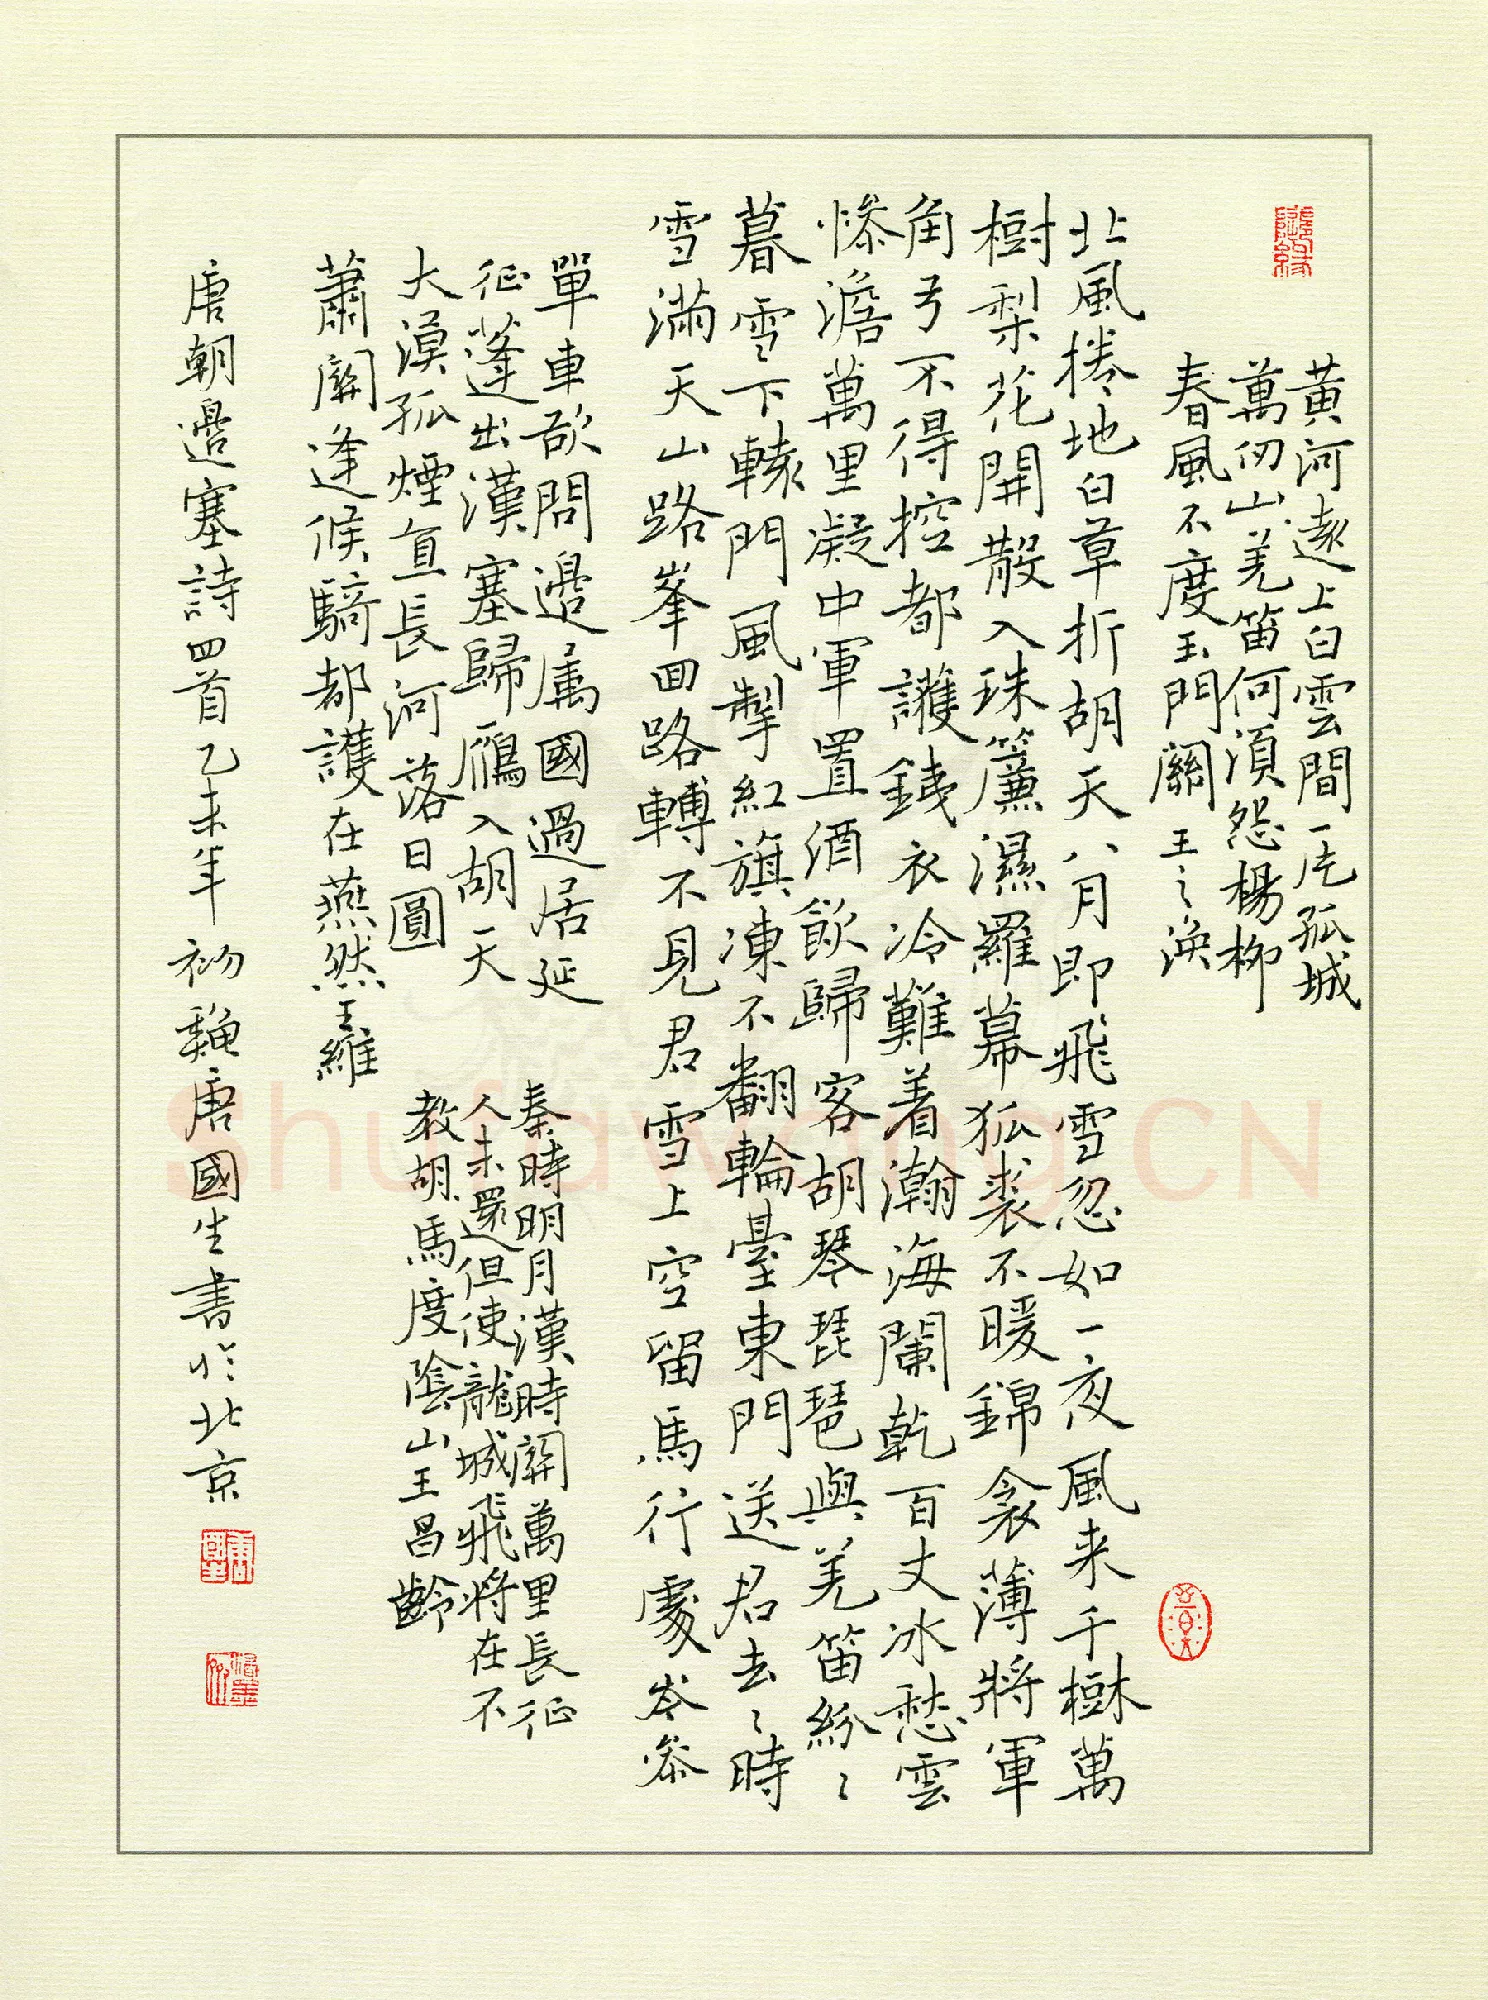 黃河遠上白雲間一片孤城
萬仞山羌笛何須怨楊柳
春風不度玉門關 王之渙
北風捲地白草折胡天八月即飛雪忽如一夜風来千樹萬
樹梨花開散入珠簾濕羅幕狐裘不暖錦衾薄將軍
角弓不得控都護鐵衣冷難着瀚海闌乾百丈冰愁雲
慘澹萬里凝中軍置酒飲歸客胡琴琵琶與羌笛紛〻
暮雪〻下轅門風掣紅旗凍不翻輪臺東門送君去〻時
雪滿天山路峯回路轉不見君雪上空留馬行處岑參
單車欲問邊属國過居延
征蓬出漢塞歸鴈入胡天
大漠孤煙直長河落日圓
蕭關逢候騎都護在燕然王維
秦時明月漢時關萬里長征
人未還但使龍城飛將在不
教胡馬度陰山王昌齡
唐朝邊塞詩四首乙未年初龝唐國生書於北京
ShufawangCN